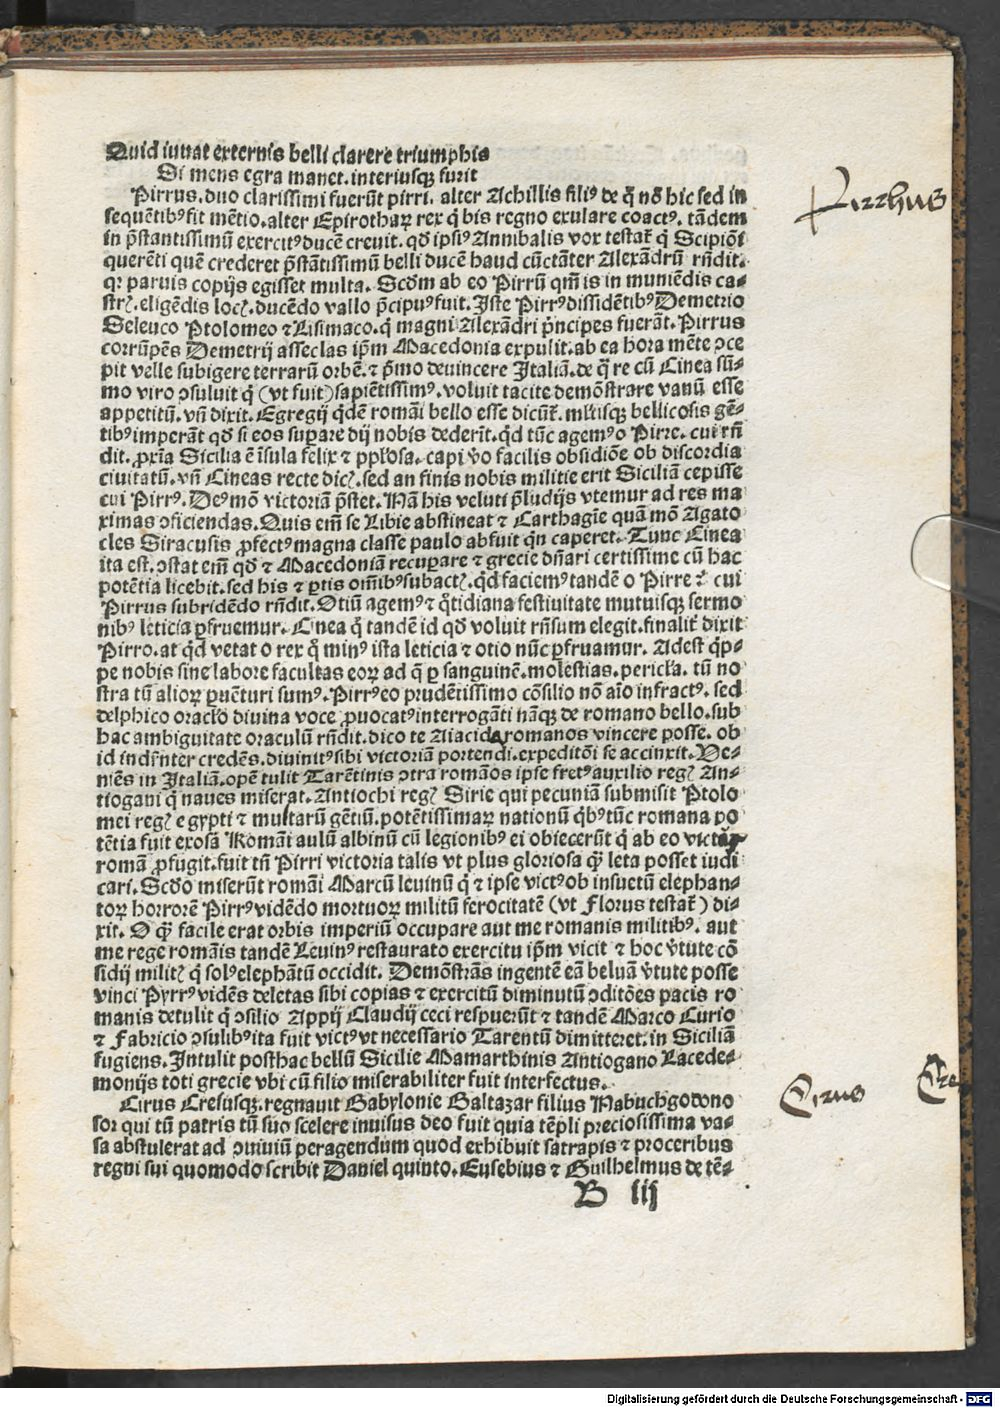 Quid iuuat externis belli clarere triumphis
Si mens egra manet. interiusqꝫ furit
Pirrus. duo clarissimi fuerūt pirri. alter Achillis fili⁹ de q̄ nō hic sed in
sequētib⁹ fit mētio. alter Epirothaꝝ rex q̇ bis regno exulare coact⁹. tādem
in p̄stantissimū exercit⁹ ducē creuit. qd̄ ipsi⁹ Annibalis vox testat̄ q̇ Scipiōi
querēti quē crederet p̄stātissimū belli ducē haud cūctāter Alexādrū rn̄dit.
qꝛ paruis copijs egisset multa. Scd̄m ab eo Pirrū qm̄ is in muniēdis ca⸗
strꝭ. eligēdis locꝭ. ducēdo vallo p̄cipu⁹ fuit. Iste Pirr⁹ dissidētib⁹ Demetrio
Seleuco Ptolomeo ⁊ Lisimaco. q̇ magni Alexādri p̄ncipes fuerāt. Pirrus
corrūpēs Demetrij asseclas ip̄m Macedonia expulit. ab ea hora mēte ꝯce
pit velle subigere terrarū orbē. ⁊ p̄mo deuincere Italiā. de q̄ re cū Cinea sū⸗
mo viro ꝯsuluit q̇ (vt fuit) sapiētissim⁹. voluit tacite demōstrare vanū esse
appetitū. vn̄ dixit. Egregij qdē romāi bello esse dicūt̄. mltisqꝫ bellicosis gē⸗
tib⁹ imperāt qd̄ si eos suꝑare dij nobis dederīt. qd̄ tūc agem⁹ o Pirre. cui rn̄
dit. ꝓxīa Sicilia ē īsula felix ⁊ pp̄losa. capi v̄o facilis obsidiōe ob discordia
ciuitatū. vn̄ Cineas recte dicꝭ. sed an finis nobis militie erit Siciliā cepisse
cui Pirr⁹. De⁹ mō victoriā p̄stet. Nā his veluti p̄ludijs vtemur ad res ma
ximas ꝯficiendas. Quis em̄ se Libie abstineat ⁊ Carthagīe quā mō Agato
cles Siracusis ꝓfect⁹ magna classe paulo abfuit qn̄ caperet. Tunc Cinea
ita est. ꝯstat em̄ qd̄ ⁊ Macedoniā recuꝑare ⁊ grecie dn̄ari certissime cū hac
potētia licebit. sed his ⁊ ꝑtis om̄ib⁹ subactꝭ. qd̄ faciem⁹ tandē o Pirre? cui
Pirrus subridēdo rn̄dit. Otiū agem⁹ ⁊ q̇tidiana festiuitate mutuisqꝫ sermo
nib⁹ leticia ꝑfruemur. Cinea q̇ tandē id qd̄ voluit rn̄sum elegit. finalit̄ dixit
Pirro. at qd̄ vetat o rex q̇ min⁹ ista leticia ⁊ otio nūc ꝑfruamur. Adest q̄p⸗
pe nobis sine labore facultas eoꝝ ad q̄ ꝑ sanguinē. molestias. pericl̄a. tū no
stra tū alioꝝ ꝑuēturi sum⁹. Pirr⁹ eo prudētissimo cōsilio nō aīo infract⁹. sed
delphico oracl̄o diuina voce ꝓuocat⁹ interrogāti nāqꝫ de romano bello. sub
hac ambiguitate oraculū rn̄dit. dico te Aiacida romanos vincere posse. ob
id indr̄nter credēs. diuinit⁹ sibi victoriā portendi. expeditōi se accinxit. Ve⸗
niēs in Italiā. opē tulit Tarētinis ꝯtra romāos ipse fret⁹ auxilio regꝭ An⸗
tiogani q̇ naues miserat. Antiochi regꝭ Sirie qui pecuniā submisit Ptolo
mei regꝭ egypti ⁊ multarū gētiū. potētissimaꝝ nationū qb⁹ tūc romana po
tētia fuit exosa Romāi aulū albinū cū legionib⁹ ei obiecerūt q̇ ab eo vict⁹
romā ꝓfugit. fuit tn̄ Pirri victoria talis vt plus gloriosa q̄ leta posset iudi
cari. Scd̄o miserūt romāi Marcū leuinū q̇ ⁊ ipse vict⁹ ob insuetū elephan⸗
toꝝ horrorē Pirr⁹ vidēdo mortuoꝝ militū ferocitatē (vt Florus testat̄) di⸗
xit. O q̄ facile erat orbis imperiū occupare aut me romanis militib⁹. aut
me rege romāis tandē Leuin⁹ restaurato exercitu ip̄m vicit ⁊ hoc v̄tute cō
sidij militꝭ q̇ sol⁹ elephātū occidit. Demōstrās ingentē eā beluā v̄tute posse
vinci Pyrr⁹ vidēs deletas sibi copias ⁊ exercitū diminutū ꝯditōes pacis ro
manis detulit q̇ ꝯsilio Appij Claudij ceci respuerūt ⁊ tandē Marco Curio
⁊ Fabricio ꝯsulib⁹ ita fuit vict⁹ vt necessario Tarentū dimitteret. in Siciliā
fugiens. Intulit posthac bellū Sicilie Mamarthinis Antiogano Lacede⸗
monijs toti grecie vbi cū filio miserabiliter fuit interfectus.
Cirus Cresusqꝫ. regnauit Babylonie Baltazar filius Nabuchgodono
sor qui tū patris tū suo scelere inuisus deo fuit quia tēpli preciosissima va⸗
sa abstulerat ad ꝯuiuiū peragendum quod exhibuit satrapis ⁊ proceribus
regni sui quomodo scribit Daniel quinto. Eusebius ⁊ Guilhelmus de tē⸗
B iij
Pirrhus
Cirus
Cre
Digitalisierung gefördert durch die Deutsche Forschungsgemeinschaft - DFG